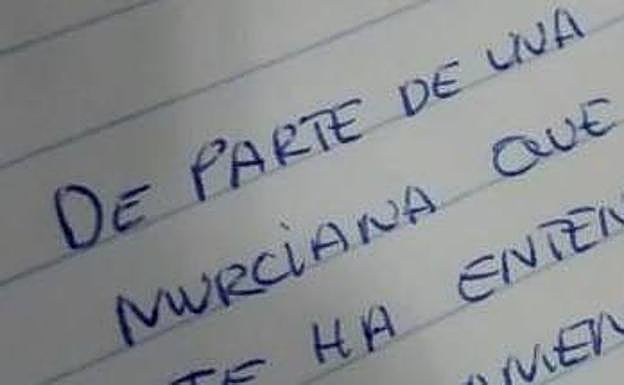 DE PARTE DE UNA
MURCiANA QUE
TE HA ENTEN
AMEN